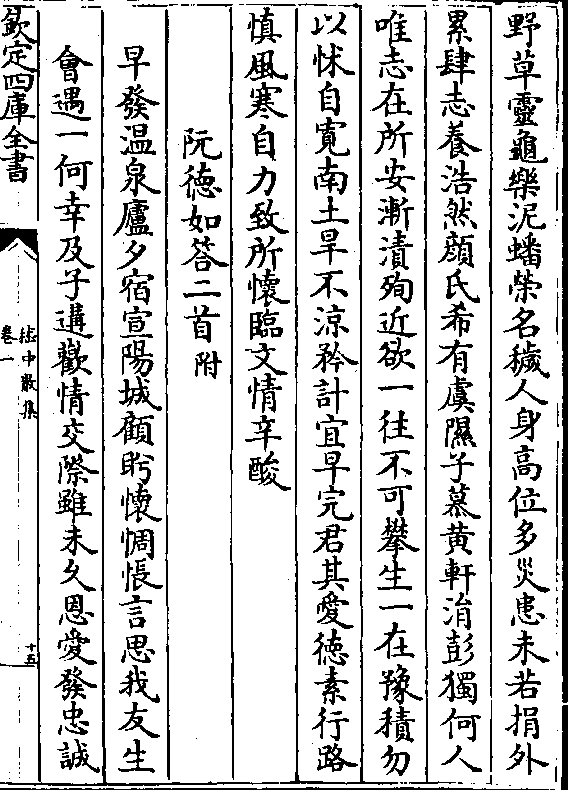 野草靈龜樂泥蟠榮名穢人身高位多災患未若捐外
累肆志養浩然顔氏希有虞隰子慕黄軒涓彭獨何人
唯志在所安漸漬殉近欲一往不可攀生一在豫積勿
以怵自寛南土旱不涼矜計宜早完君其愛徳素行路
慎風寒自力致所懷臨文情辛酸
阮徳如答二首附
早發温泉廬夕宿宣陽城顧眄懷惆悵言思我友生
會遇一何幸及子遘歡情交際雖未久恩愛發忠誠
欽定四庫全書
嵇中散集
卷一
十五